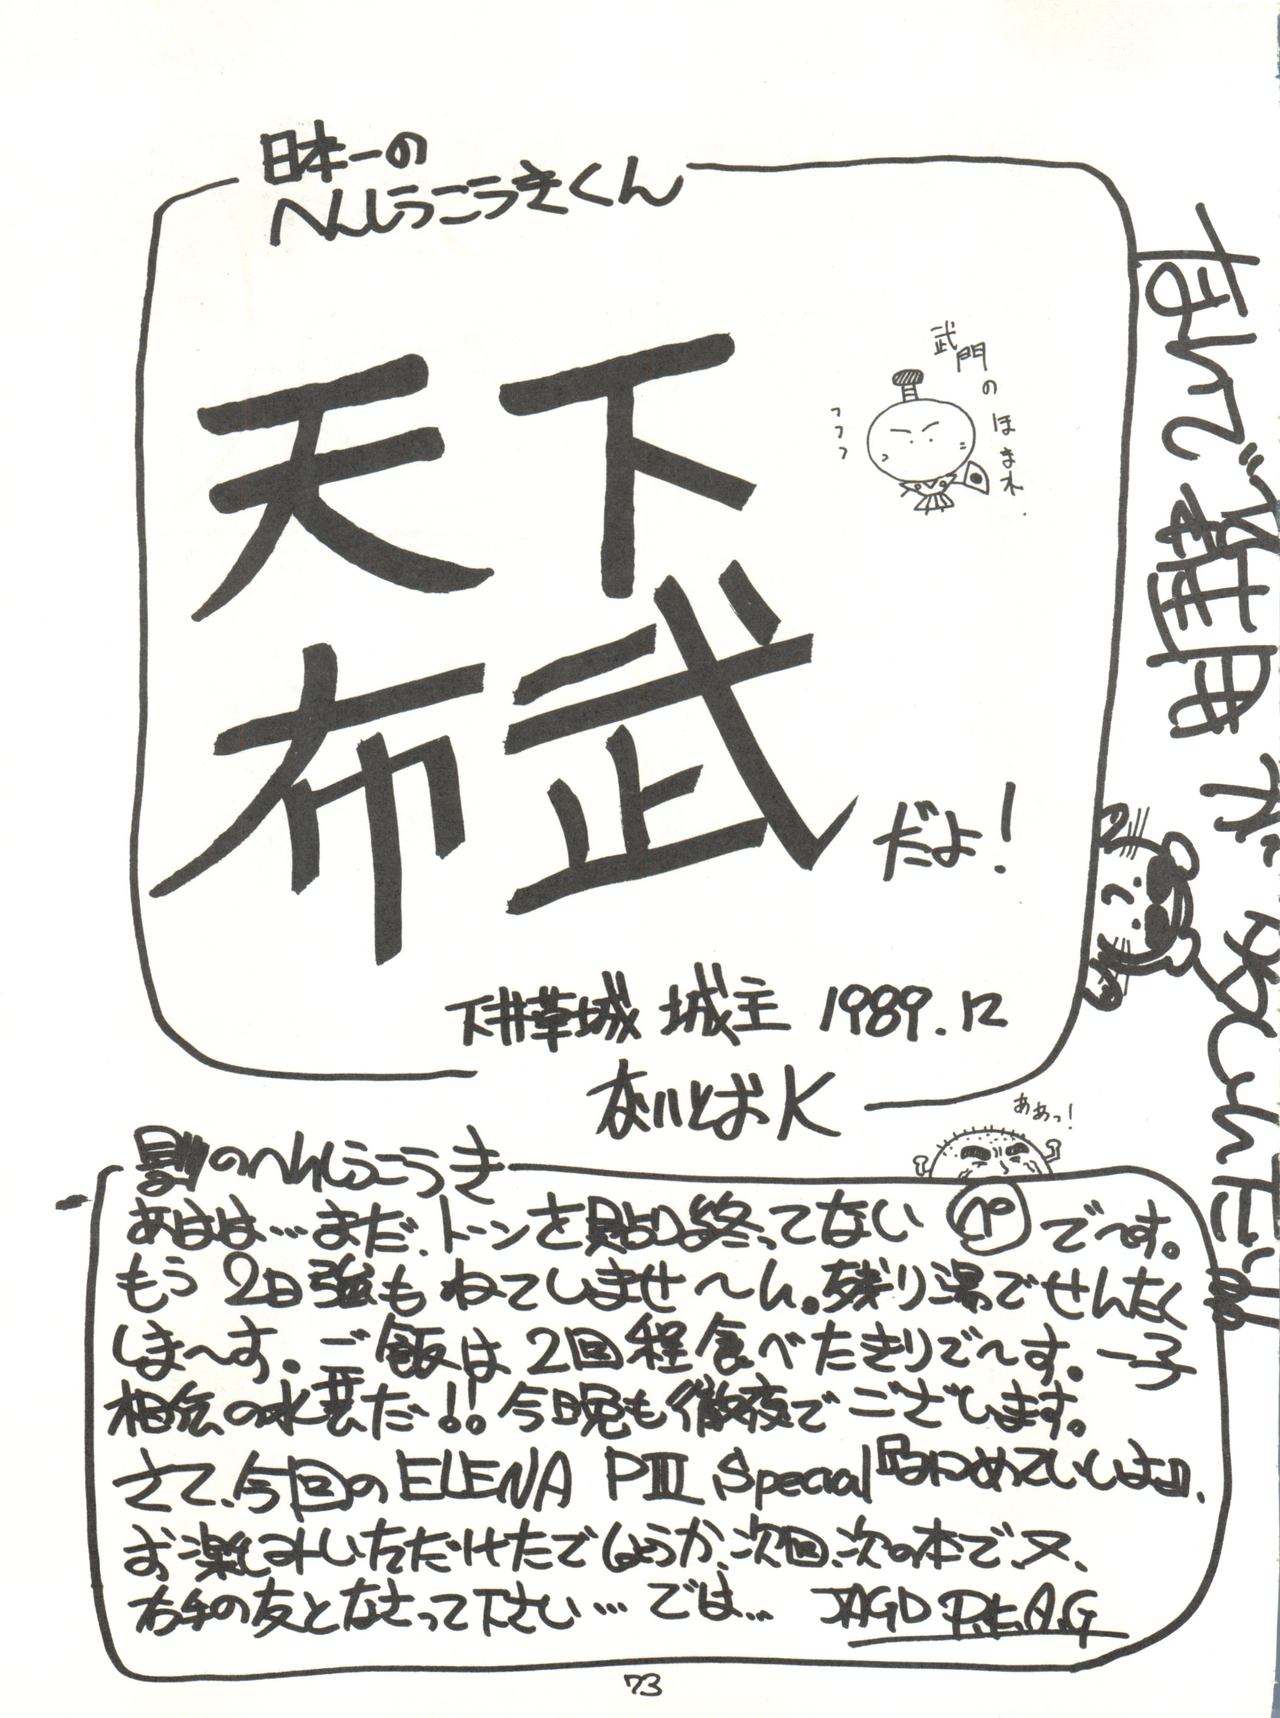 日本一の
へんしうこうきくん
天下
布武
だよ!
武門のほまれ
フフフ
下井草城 城主 1989.12
ないとおK
なんで雑用が
ああっ!
別のへんしうこうき
あはは…まだ、トーンを貼り終ってない ペ で〜す。
もう2日強もねてしませ〜ん。残り湯でせんたく
しま〜す。ご飯は2回程食べたきりで〜す。一子
相伝の水芸だ!!今晩も徹夜でございます。
さて、今回のELENA PⅢ Special
お楽しみいただけたでしょうか、次回、次の本で、又、
右手の友となさって下さい…では… JAGD P.E.A.G
73